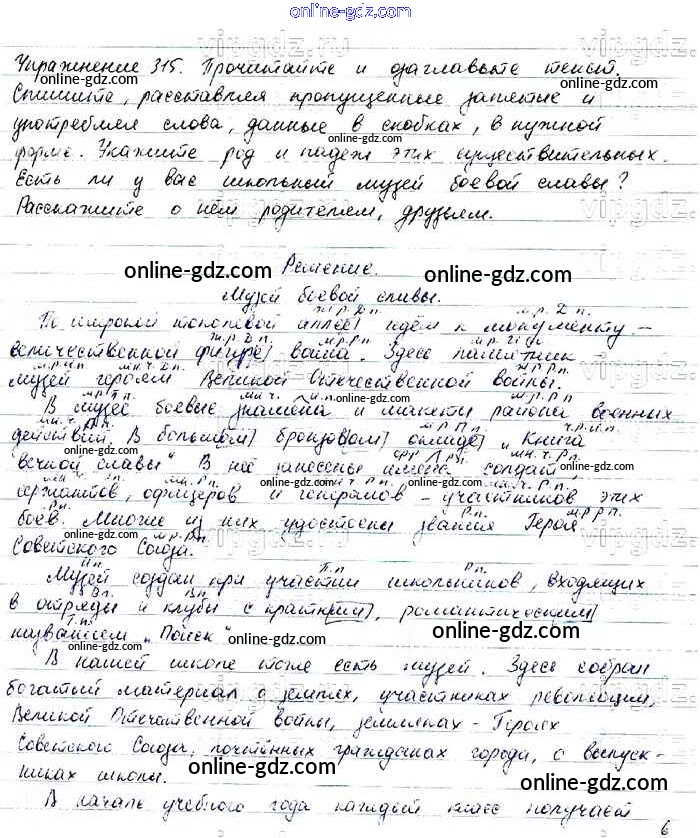 online-gdz.com
Упражнение 315. Прочитайте и озаглавьте текст.
online-gdz.com online-gdz.com
Спишите, расставляя пропущенные запятые и
употребляя слова, данные в скобках, в нужной
online-gdz.com
форме. Укажите род и падеж этих существительных.
Есть ли у вас школьный музей боевой славы?
Расскажите о нём родителям, друзьям.
Решение.
online-gdz.com online-gdz.com online-gdz.com
Музей боевой славы.
ж.р. Д.п. м.р. Д.п.
По широкой тополевой аллее идём к монументу –
ж.р. Д.п. м.р. Р.п.
величественной фигуре воина. Здесь памятник –
м.р. И.п. мн.ч. Д.п. ж.р. Р.п.
музей героям Великой Отечественной войны.
м.р. П.п. мн.ч. И.п. online-gdz.com
В музее боевые знамёна и макеты района военных
действий. В большом бронзовом окладе „Книга
вечной славы“. В неё занесены имена солдат,
сержантов, офицеров и генералов – участников этих
online-gdz.com online-gdz.com online-gdz.com
боев. Многие из них удостоены звания Героя
Советского Союза.
online-gdz.com
И.п. П.п. Р.п.
Музей создан при участии школьников, входящих
В.п. В.п.
в отряды и клубы с кратким, романтическим
Т.п.
названием „Поиск“
online-gdz.com online-gdz.com
В нашей школе тоже есть музей. Здесь собран
богатый материал о земляках, участниках революции,
Великой Отечественной войны, земляках – Героях
Советского Союза, почётных гражданах города, о выпуск-
никах школы.
online-gdz.com online-gdz.com
В начале учебного года каждый класс получает
6